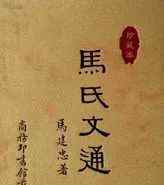 珍藏本
馬氏文通
馬建忠著
商務印書館